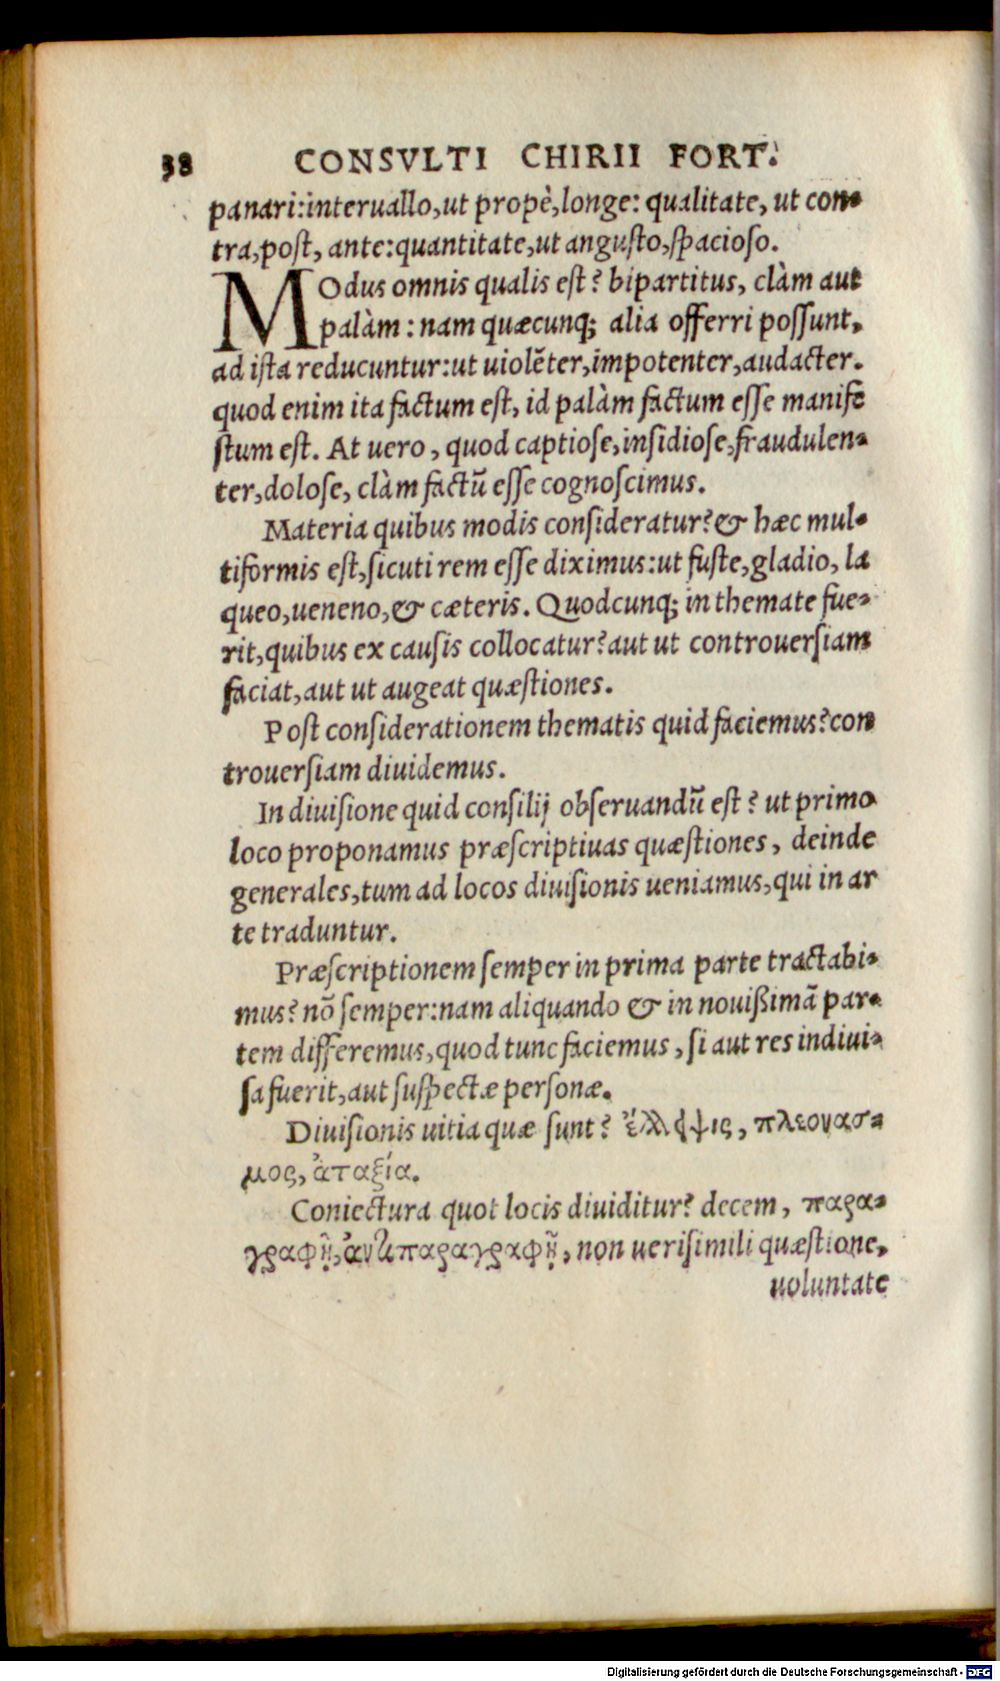 38 CONSVLTI CHIRII FORT.
panari:interuallo,ut propè,longe: qualitate, ut con-
tra,post, ante:quantitate,ut angusto,spacioso.
MOdus omnis qualis est? bipartitus, clàm aut
palàm: nam quæcunq; alia offerri possunt,
ad ista reducuntur:ut uiolẽter,impotenter,audacter.
quod enim ita factum est, id palàm factum esse manife
stum est. At uero, quod captiose,insidiose,fraudulen-
ter,dolose, clàm factũ esse cognoscimus.
Materia quibus modis consideratur?& hæc mul-
tiformis est,sicuti rem esse diximus:ut fuste,gladio, la
queo,ueneno,& cæteris. Quodcunq; in themate fue-
rit,quibus ex causis collocatur?aut ut controuersiam
faciat,aut ut augeat quæstiones.
Post considerationem thematis quid faciemus?con
trouersiam diuidemus.
In diuisione quid consilij obseruandũ est? ut primo
loco proponamus præscriptiuas quæstiones, deinde
generales,tum ad locos diuisionis ueniamus,qui in ar
te traduntur.
Præscriptionem semper in prima parte tractabi-
mus? nõ semper:nam aliquando & in nouißimã par-
tem differemus,quod tunc faciemus, si aut res indiui-
sa fuerit,aut suspectæ personæ.
Diuisionis uitia quæ sunt? ἔλλειψις, πλεονασ-
μος, ἀταξία.
Coniectura quot locis diuiditur? decem, παρα-
γραφῇ, ἀντιπαραγραφῇ, non uerisimili quæstione,
uoluntate
Digitalisierung gefördert durch die Deutsche Forschungsgemeinschaft - DFG